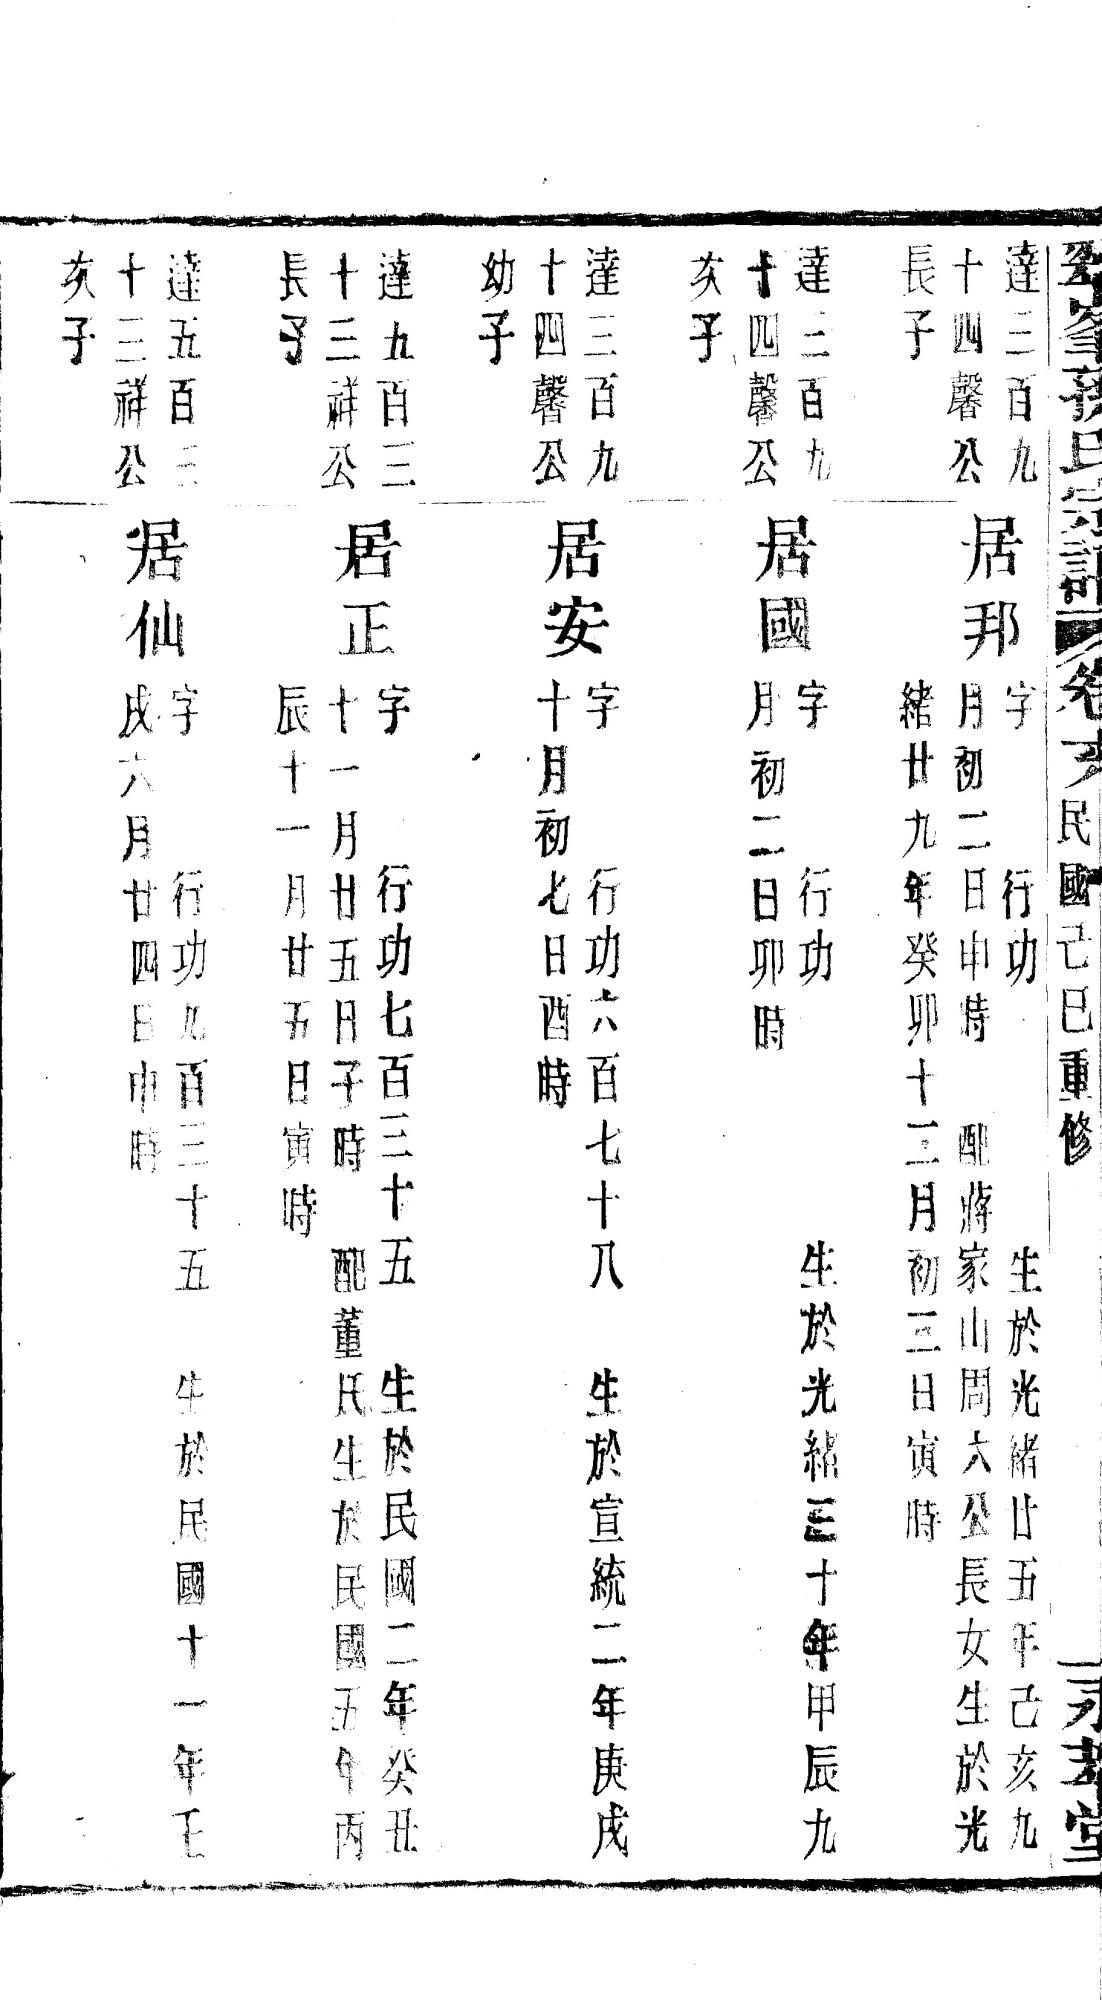 氏宗譜 卷 民國己巳重修
堂
達三百九
十四馨公
長子
居邦
字 行功 生於光緒廿五年己亥九
月初二日申時 配蔣家山周大公長女生於光
緒廿九年癸卯十二月初三日寅時
達三百九
十四馨公
次子
居國
字 行功 生於光緒三十年甲辰九
月初二日卯時
達三百九
十四馨公
幼子
居安
字 行功六百七十八 生於宣統二年庚戌
十月初七日酉時
達九百三
十三祥公
長子
居正
字 行功七百三十五 生於民國二年癸丑
十一月廿五日子時 配董氏生於民國五年丙
辰十一月廿五日寅時
達五百三
十三祥公
次子
居仙
字 行功九百三十五 生於民國十一年壬
戌六月廿四日申時